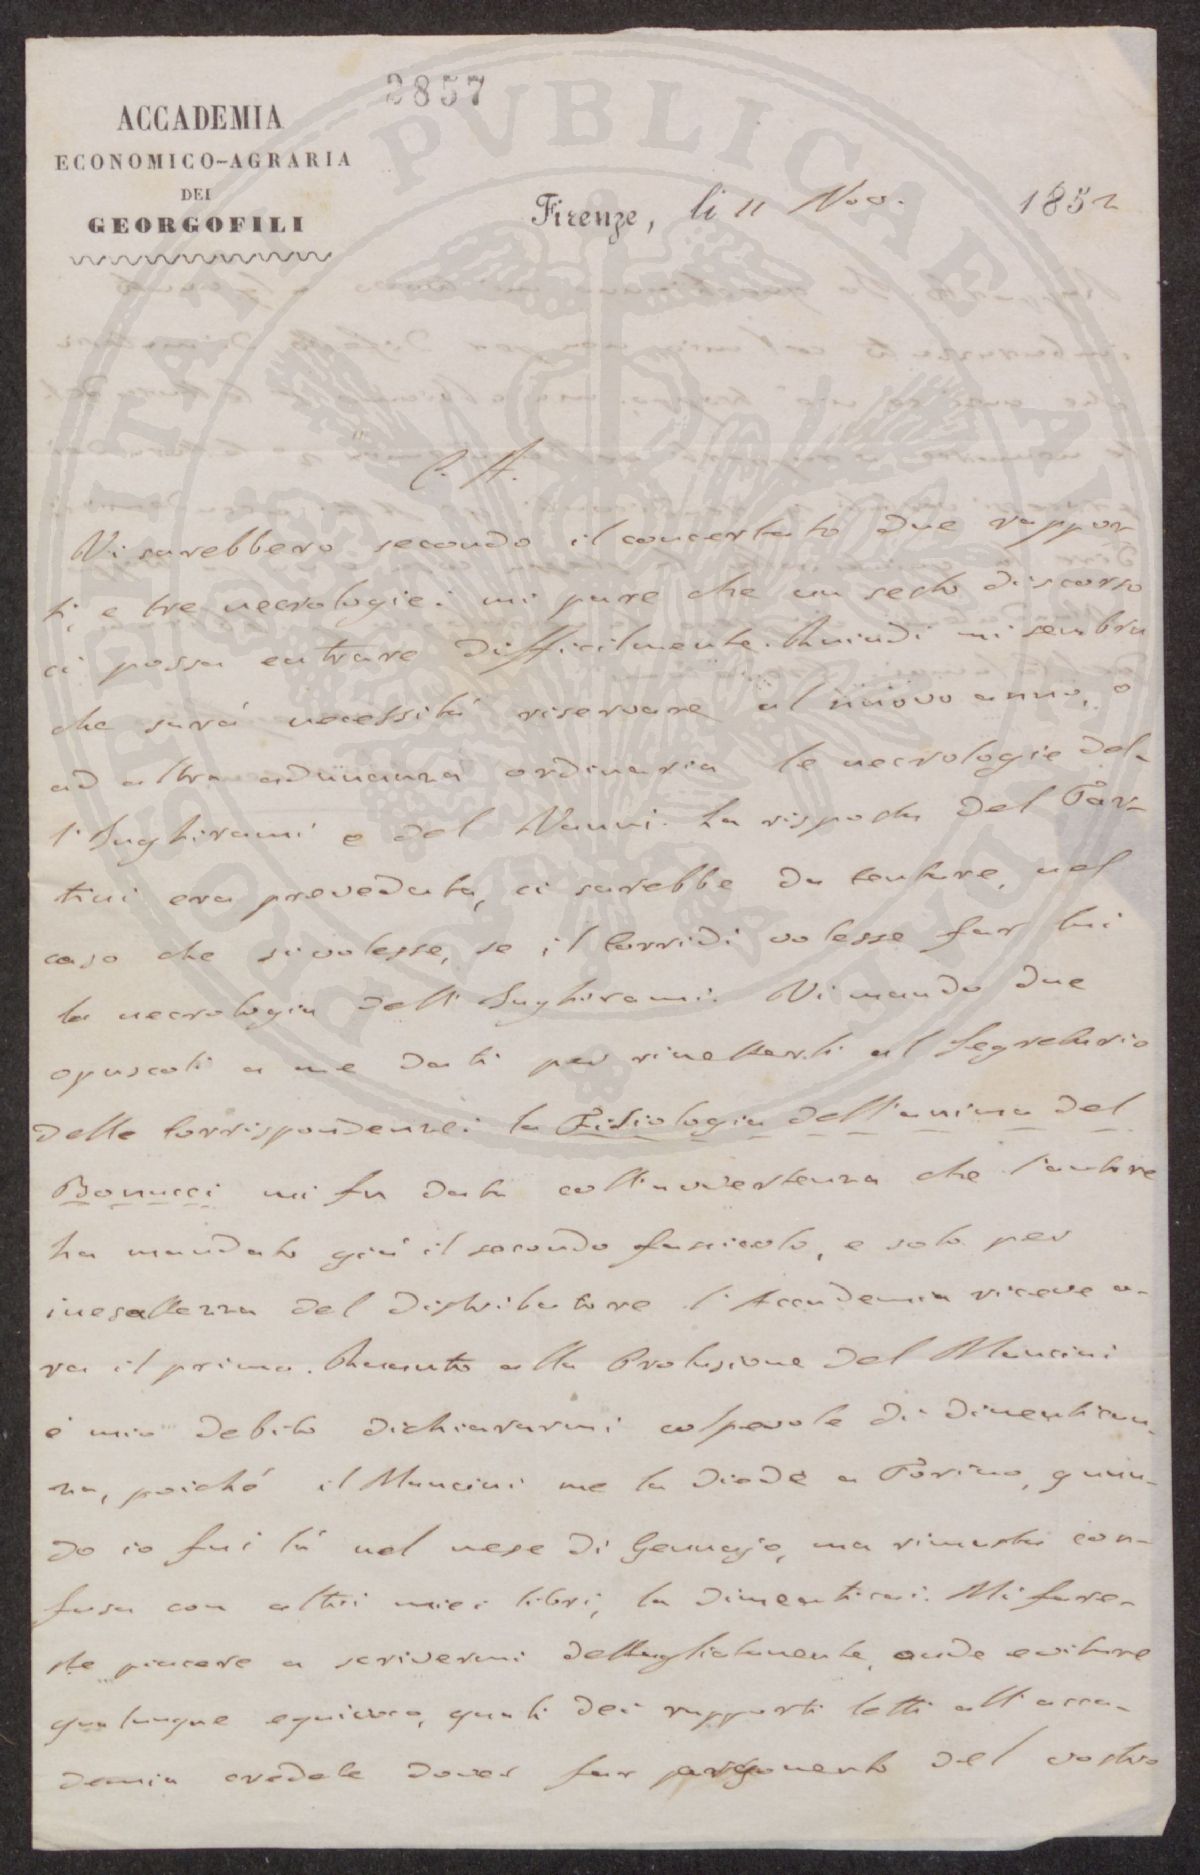 2857
ACCADEMIA
ECONOMICO-AGRARIA
DEI
GEORGOFILI
Firenze, li 11 Nov. 1852
C. A.
Vi sarebbero secondo il concertato due rappor-
ti, e tre necrologie: mi pare che un sesto discorso
ci possa entrare difficilmente. Quindi mi sembra
che sarà necessità riservare al nuovo anno, o
ad altra adunanza ordinaria le necrologie del-
l'Inghirami e del Nanni. La risposta del Tar-
tini era preveduta, ci sarebbe da tentare, nel
caso che si volesse, se il Corridi volesse far lui
la necrologia dell'Inghirami. Vi mando due
opuscoli a me dati per rimetterli al Segretario
delle Corrispondenze: la Fisiologia dell'anima del
Bonucci mi fu data coll'avvertenza che l'autore
ha mandato già il secondo fascicolo, e solo per
inesattezza del distributore l'Accademia riceve o-
ra il primo. Quanto alla Prolusione del Mancini
è mio debito dichiararmi colpevole di dimentican-
za, poiché il Mancini me la diede a Torino, quan-
do io fui là nel mese di Gennajo, ma rimasta con-
fusa con altri miei libri, la dimenticai. Mi fare-
ste piacere a scrivermi dettagliatamente, onde evitare
qualunque equivoco, quali dei rapporti letti all'acca-
demia credete dover far argomento del vostro
PUBLICAE